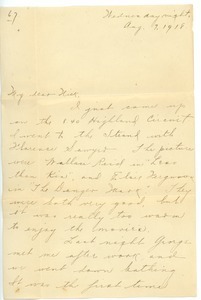 67
Wednesday night,
Aug. 2, 1918
My dear Dick,
I just came up
on the 1 40 Highland Circuit
I went to the Strand with
Florence Sawyer. The pictures
were Wallace Reid in "Less
than Kin", and Elsie Ferguson
in "The Danger Mark". They
were both very good, but
it was really too warm
to enjoy the movies.
Last night George
met me after work, and
we went down bathing.
It was the first time